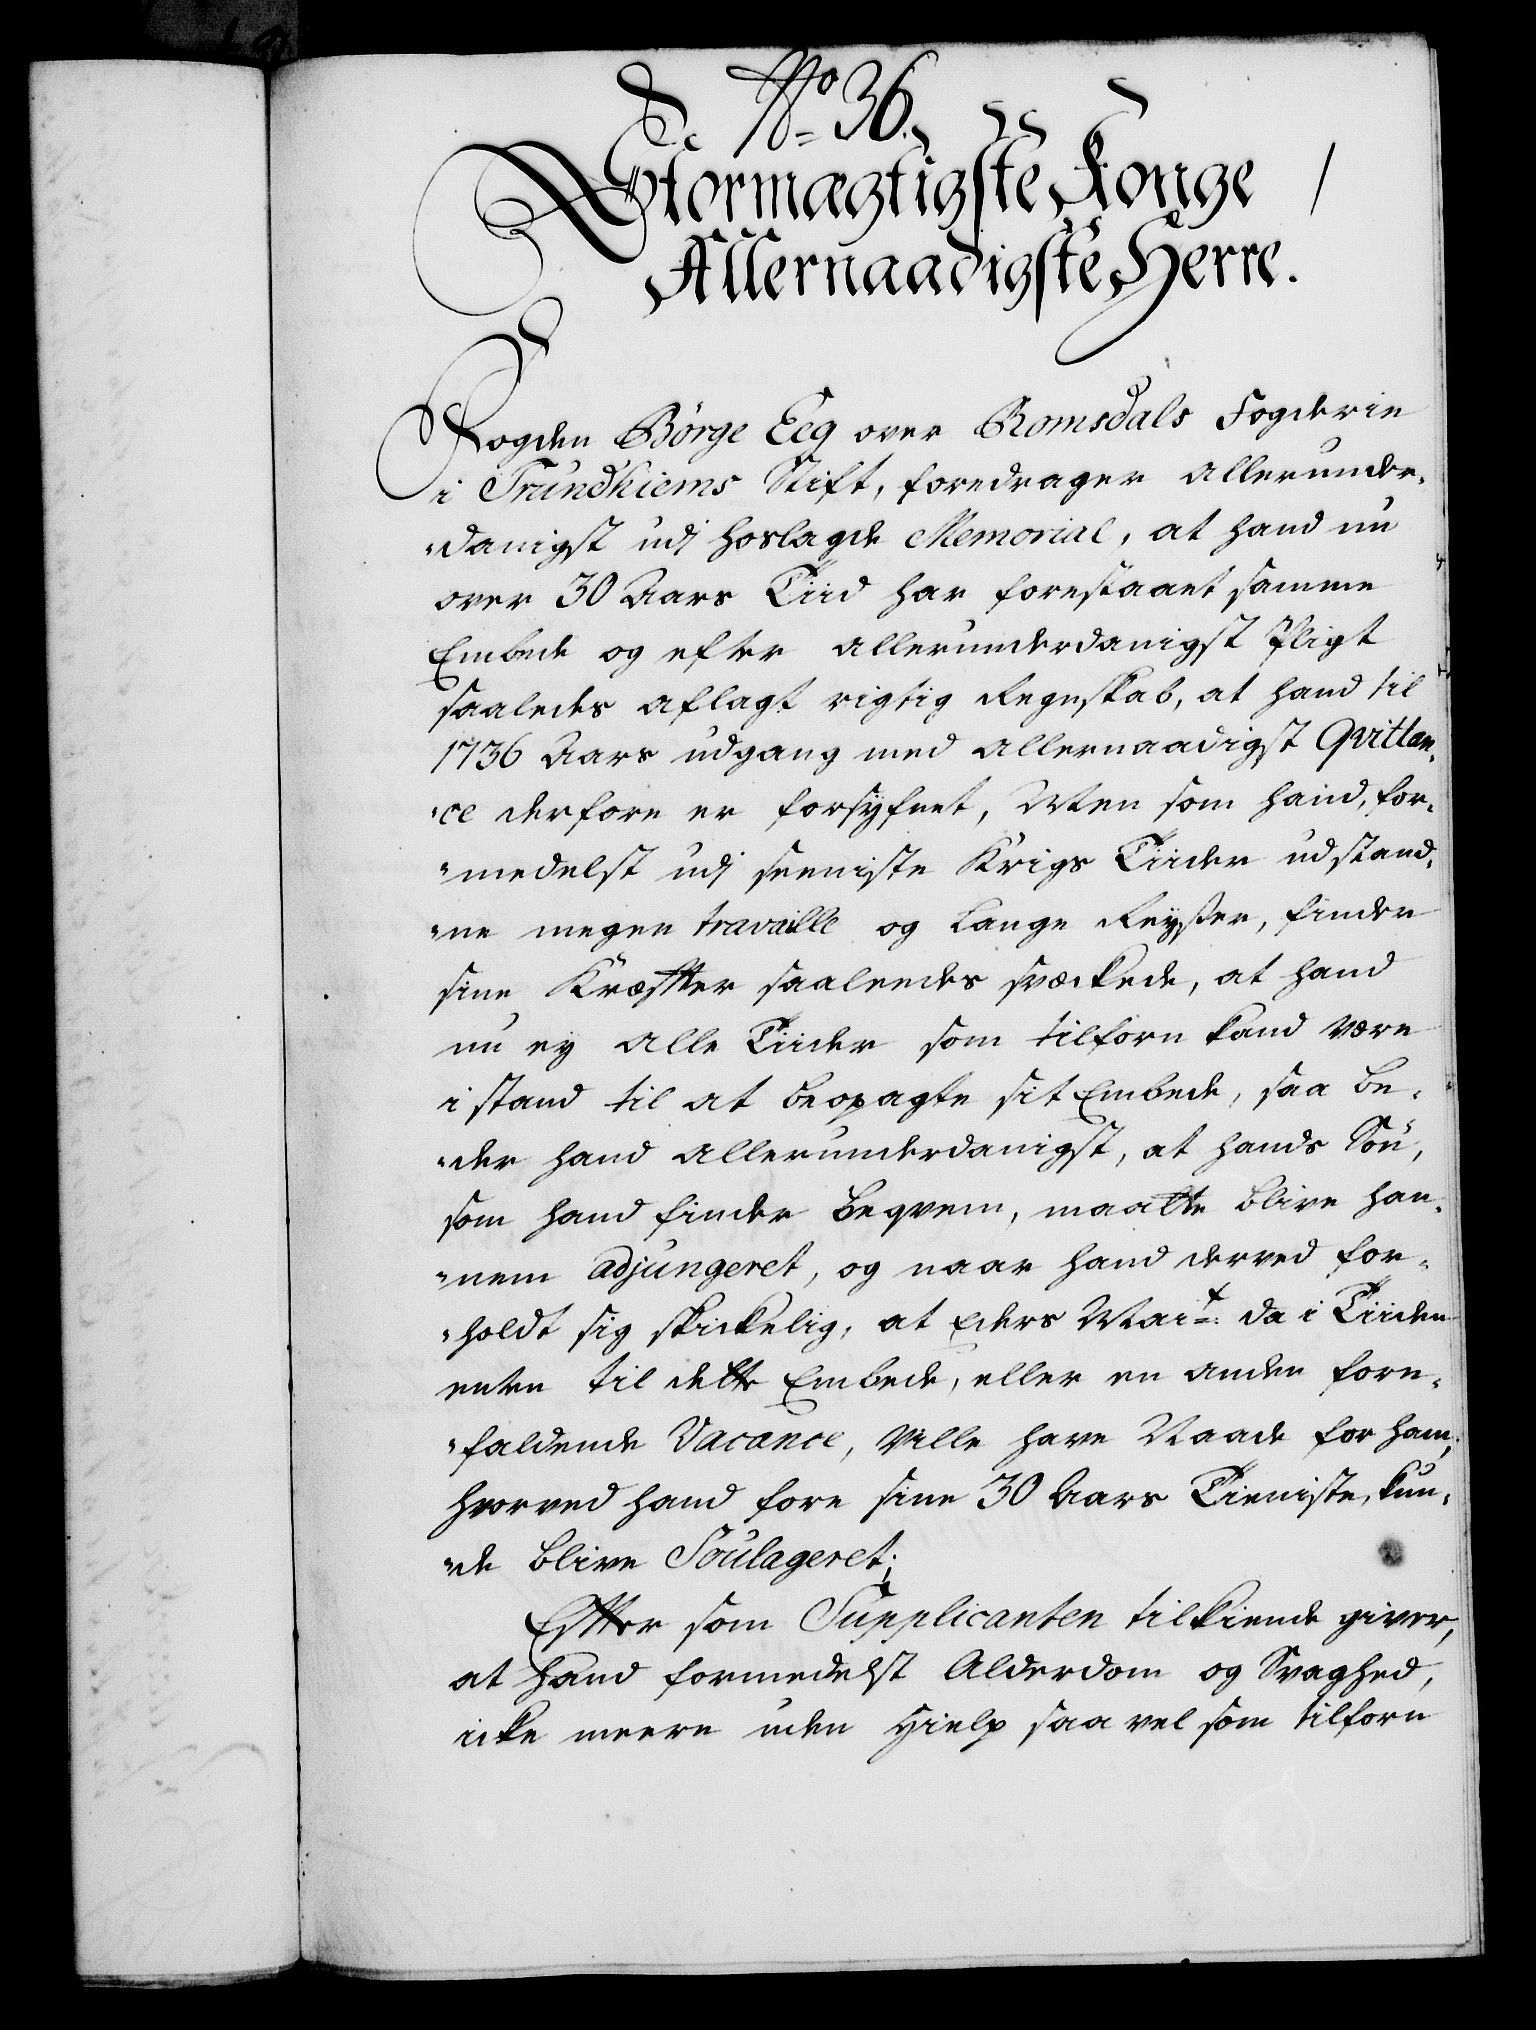 No 36.
Stormægtigste Konge
Allernaadigste Herre.
Fogden Börge Eeg over Romsdals Fogderie
i Trundhiems Stift, foredrager allerunder-
danigst udj hoslagde Memorial, at hand nu
over 30 Aars Tiid har forestaaet samme
Embede og efter allerunderdanigst Pligt
saaledes aflagt rigtig Regnskab, at hand til
1736 Aars udgang med allernaadigst Qvittan-
ce derfore er forsyfnet, Men som hand, for-
medelst udj seeniste Krigs Tiider udstand-
ne megen travaille og lange Reyßer, finder
sine Kræffter saaleedes svæckede, at hand
nu ey alle Tiider som tilforn kand være
i stand til at beopagte sit Embede, saa be-
der hand allerunderdanigst, at hands Sön,
som hand finder beqvem, maatte blive han-
nem adjungeret, og naar hand derved for-
holdt sig skickelig, at Eders Mait: da i Tiiden
enten til dette Embede, eller en anden fore-
faldende Vacance, Ville have Naade for ham,
hvorved hand fore sine 30 Aars Tieniste, kun-
de blive Soulageret;
Effter som Supplicanten tilkiende giver,
at hand formedelst Alderdom og Svaghed,
icke meere uden Hielp saa vel som tilforn